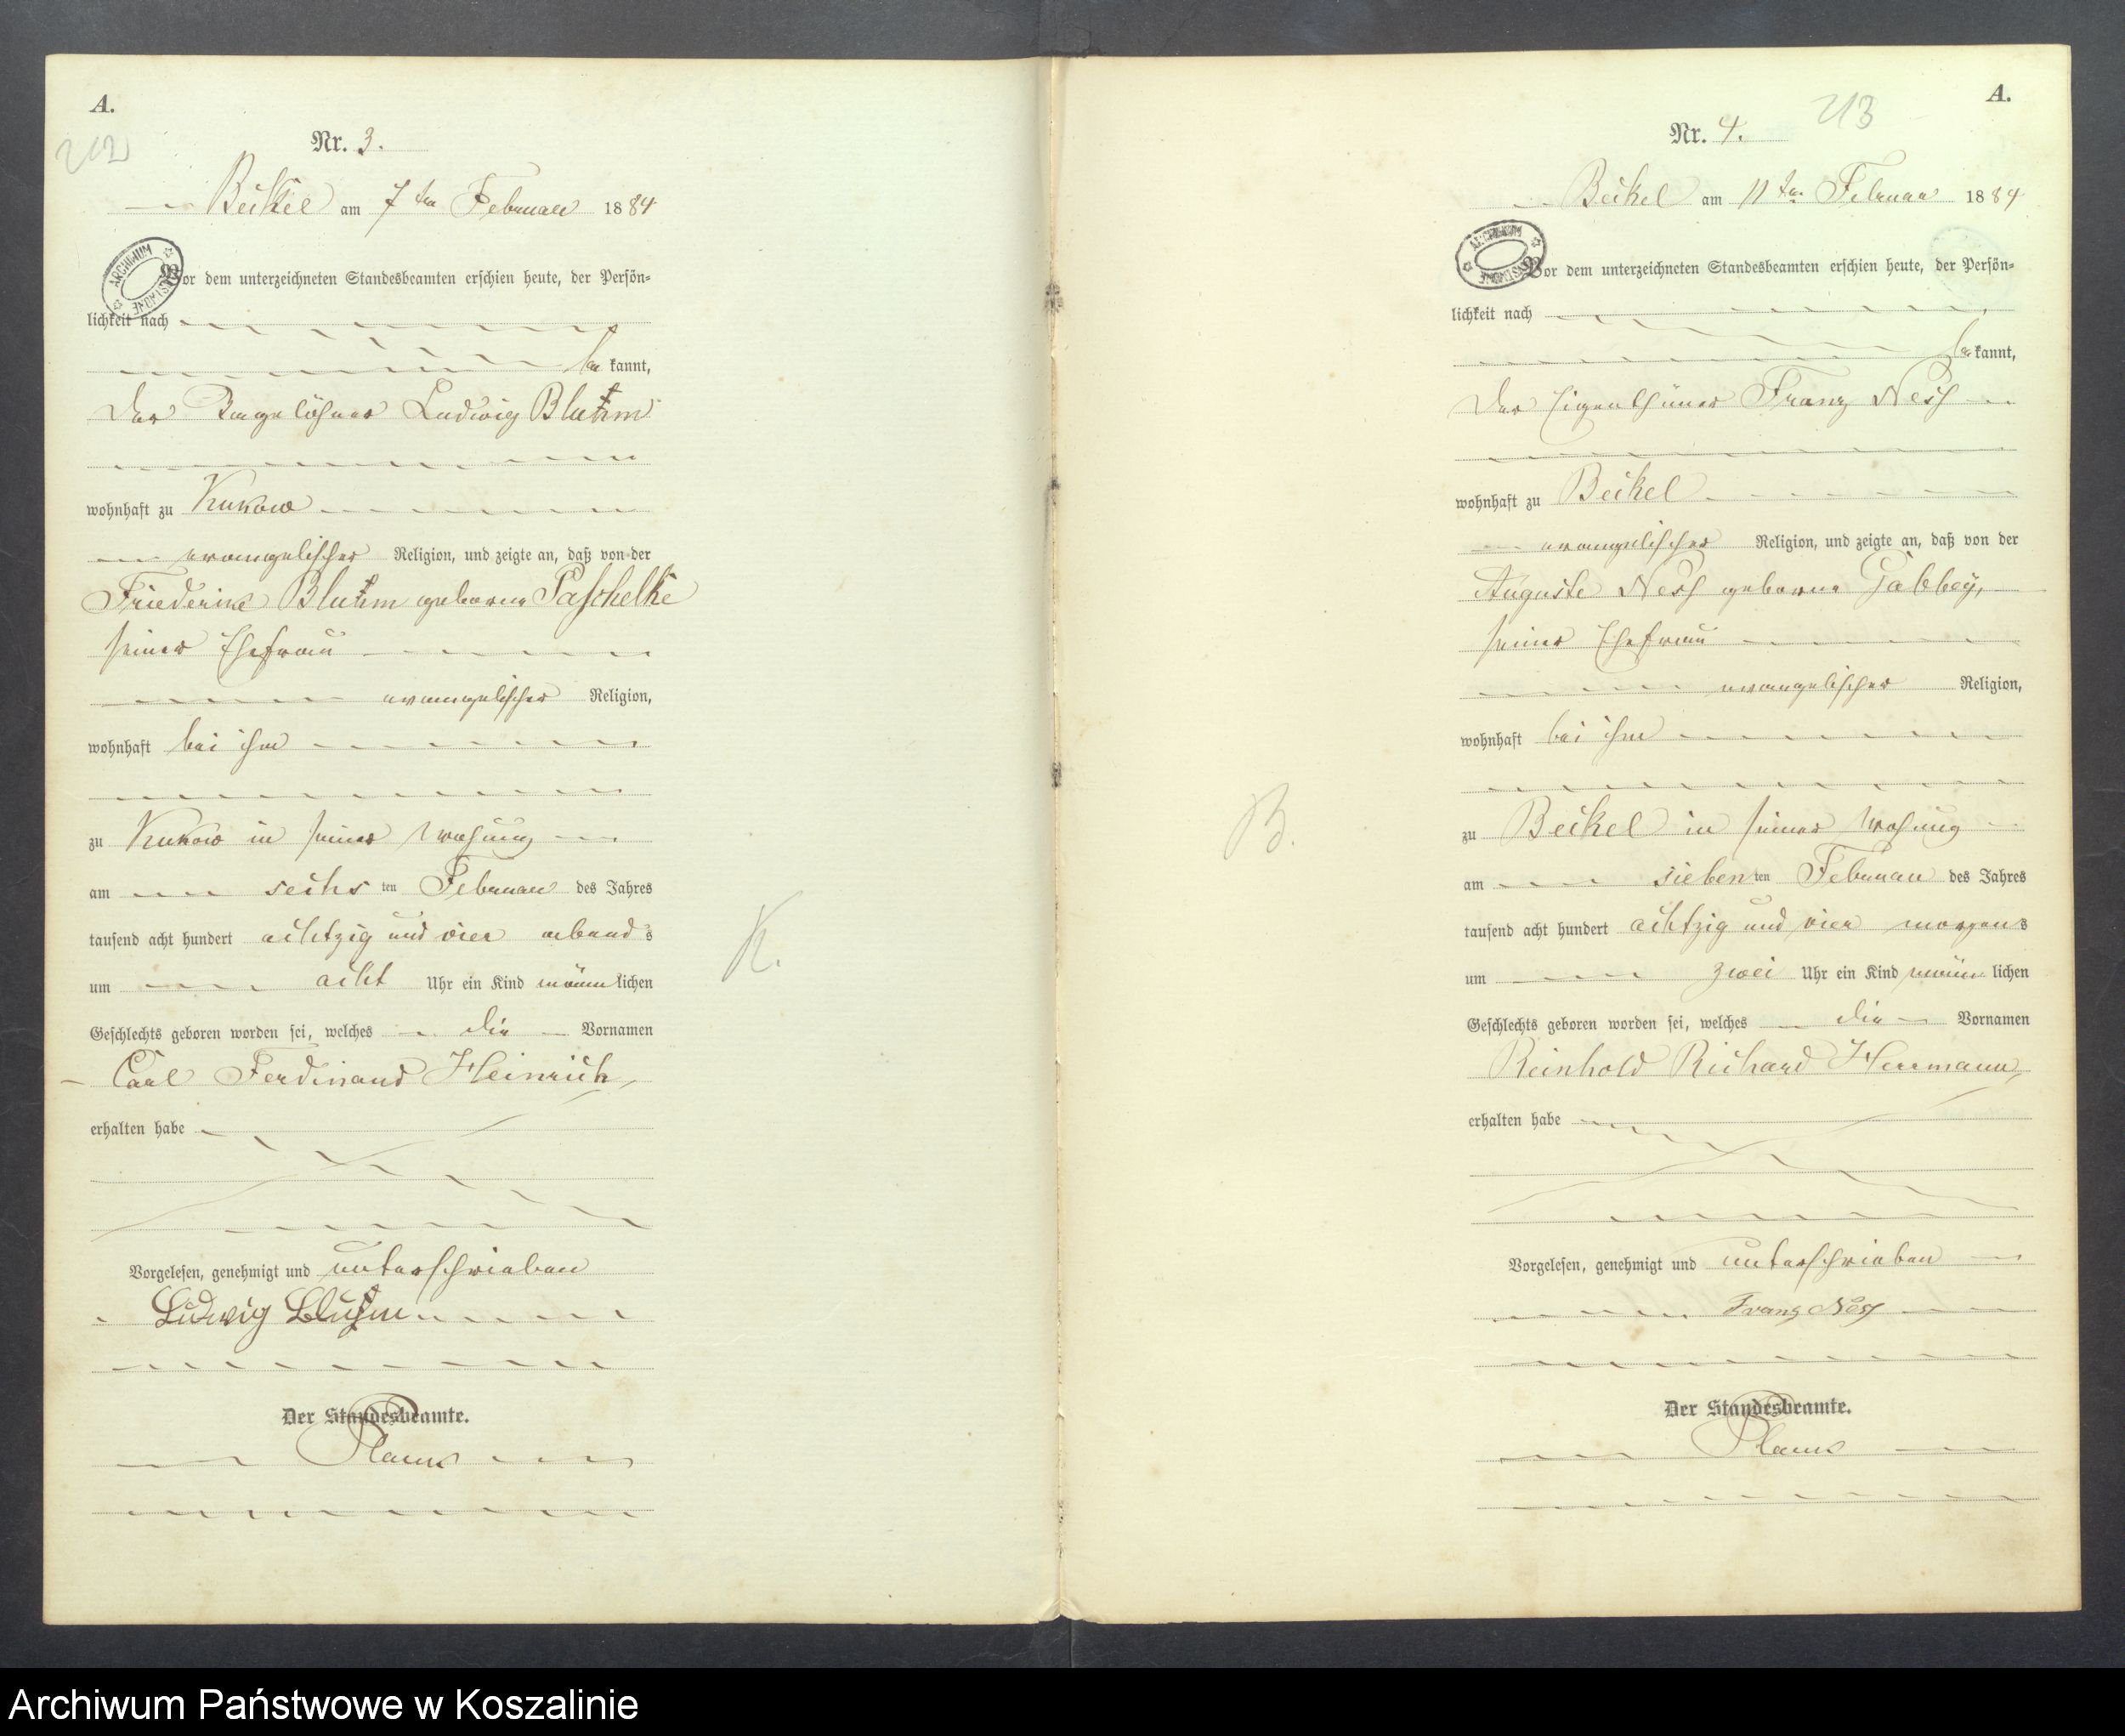 A.
212
Nr. 3.
Beikel am 7ten Februar 1884
ARCHIWUM
Vor dem unterzeichneten Standesbeamten erschien heute, der Persön=
lichkeit nach
be kannt,
der Tagelöhner Ludwig Bluhm
wohnhaft zu Kukow
evangelischer Religion, und zeigte an, daß von der
Friederike Bluhm geborne Paschelke
seiner Ehefrau
evangelischer Religion,
wohnhaft bei ihm
zu Kukow in seiner Wohnung
am sechs ten Februar des Jahres
tausend acht hundert achtzig und vier abends
um acht Uhr ein Kind männ lichen
Geschlechts geboren worden sei, welches die Vornamen
Carl Ferdinand Heinrich,
erhalten habe
K.
Vorgelesen, genehmigt und unterschrieben
Ludwig Bluhm
Der Standesbeamte.
A.
213
Nr. 4.
Beikel am 11ten Februar 1884
ARCHIWUM
Vor dem unterzeichneten Standesbeamten erschien heute, der Persön=
lichkeit nach
be kannt,
der Eigenthümer Franz Nesch
wohnhaft zu Beikel
evangelischer Religion, und zeigte an, daß von der
Auguste Nesch geborne Gabbey,
seiner Ehefrau
evangelischer Religion,
wohnhaft bei ihm
zu Beikel in seiner Wohnung
am sieben ten Februar des Jahres
tausend acht hundert achtzig und vier morgens
um zwei Uhr ein Kind männ lichen
Geschlechts geboren worden sei, welches die Vornamen
Reinhold Richard Herrmann,
erhalten habe
B.
Vorgelesen, genehmigt und unterschrieben
Franz Nesch
Der Standesbeamte.
Archiwum Państwowe w Koszalinie